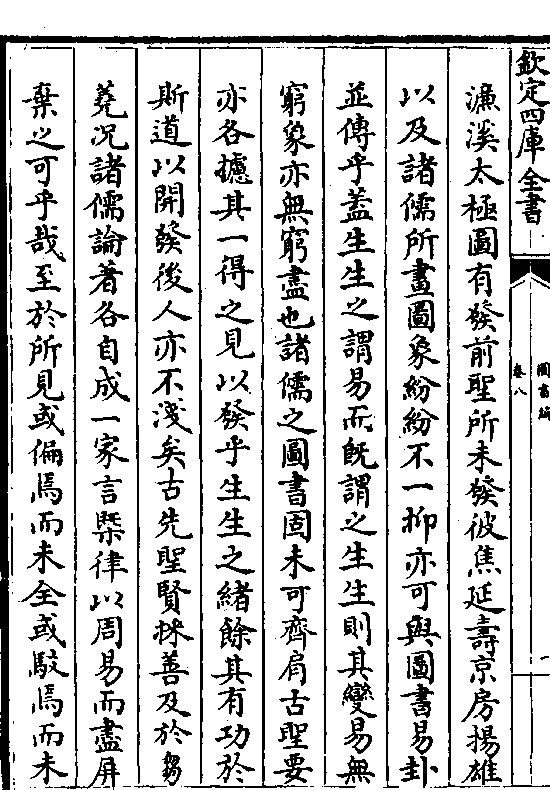 欽定四庫全書
圖書編
卷八
濂溪太極圖有發前聖所未發彼焦延壽京房揚雄
以及諸儒所畫圖象紛紛不一抑亦可與圖書易卦
並傳乎蓋生生之謂易而既謂之生生則其變易無
窮象亦無窮盡也諸儒之圖書固未可齊肩古聖要
亦各攄其一得之見以發乎生生之緒餘其有功於
斯道以開發後人亦不淺矣古先聖賢採善及於芻
蕘况諸儒論著各自成一家言槩律以周易而盡屏
棄之可乎哉至於所見或偏焉而未全或駁焉而未